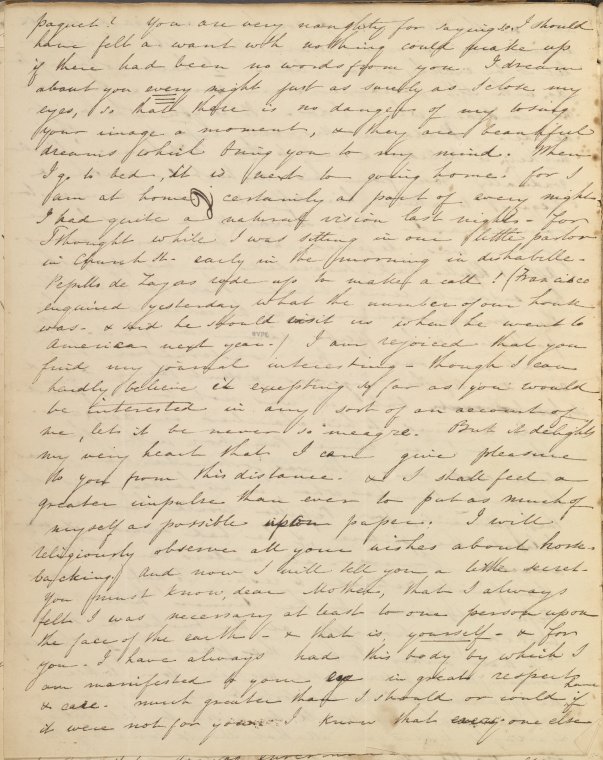 paquet! You are very naughty for saying so. I should
have felt a want wth nothing could make up
if there had been no words from you. I dream
about you every night just as surely as I close my
eyes, so that there is no danger of my losing
your image a moment, & they are beautiful
dreams which bring you to my mind. When
I go to bed, it is next to going home. for I
am at home certainly a part of every night.
I had quite a natural vision last night. For
Thought while I was sitting in our little parlor
in Church St. early in the morning in dishabille.
Pepillo de Layas rode up to make a call! (Francisco
enquired yesterday what the number of our house
was. & said he should visit us when he went to
America next year.) I am rejoiced that you
find my journal interesting - though I can
hardly believe it excepting so far as you would
be interested in any sort of an account of
me, let it be never so meagre. But it delights
my very heart that I can give pleasure
to you from this distance. & I shall feel a
greater impulse than ever to put as much of
myself as possible upon paper. I will
religiously observe all your wishes about horse-
backing. And now I will tell you a little secret.
You must know, dear Mother, that I always
felt I was necessary at least to one person upon
the face of the earth - & that is yourself - & for
you. I have always had this body by which I
am manifested to your eye in great respect
& care. much greater than I should or could have
it were not for you. I know that every one else if
NYPL